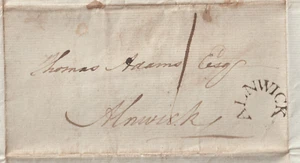 Thomas Adams Esqr
Alnwick
ALNWICK